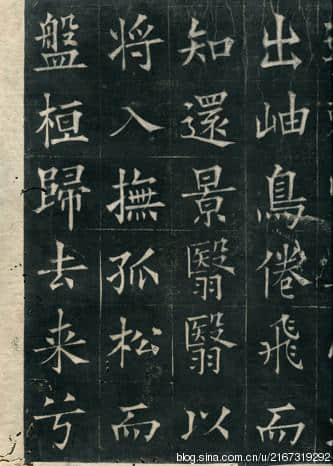 出岫鳥倦飛而
知還景翳翳以
将入撫孤松而
盤桓歸去来兮
blog.sina.com.cn/u/2167319292